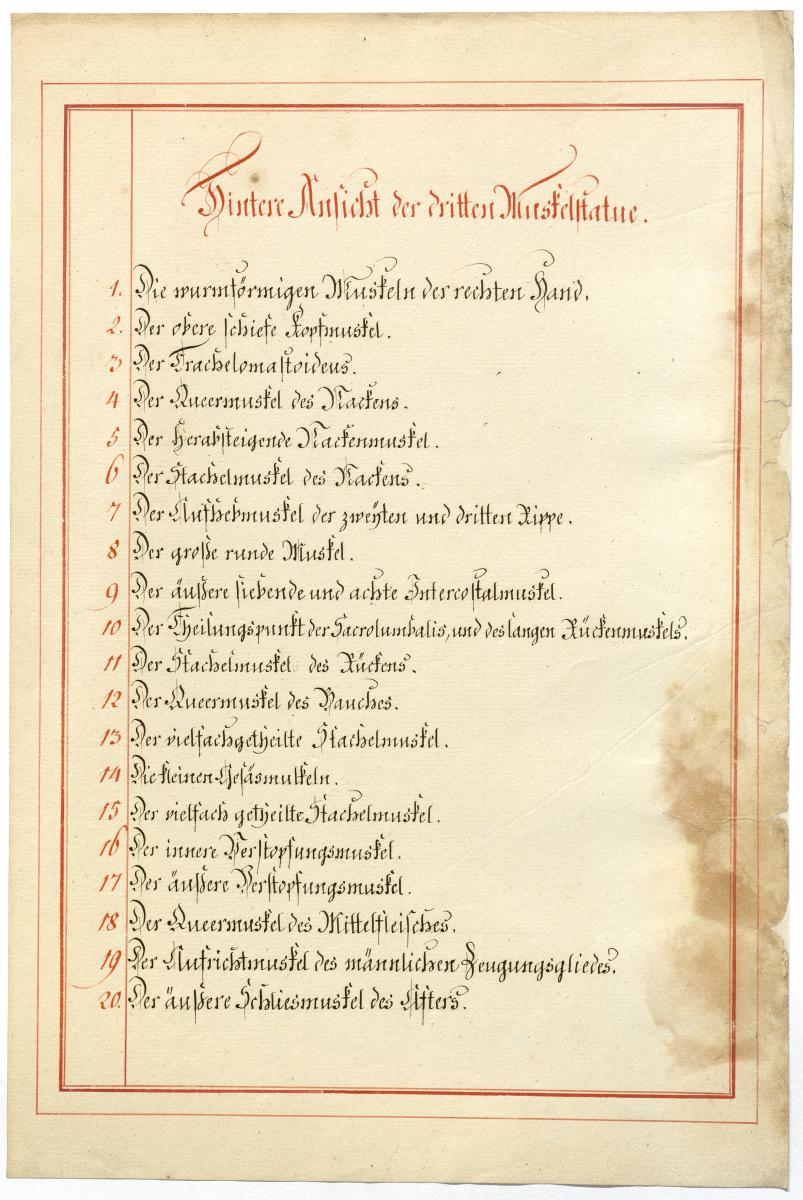 Hintere Ansicht der dritten Muskelstatue.
1. Die wurmförmigen Muskeln der rechten Hand.
2. Der obere schiefe Kopfmuskel.
3 Der Trachelomastoideus.
4 Der Queermuskel des Nackens.
5 Der herabsteigende Nackenmuskel.
6 Der Stachelmuskel des Nackens.
7 Der Aufhebmuskel der zweÿten und dritten Rippe.
8 Der große runde Muskel.
9 Der äußere siebende und achte Intercostalmuskel.
10 Der Theilungspunkt der Sacrolumbalis, und des langen Rückenmuskels.
11 Der Stachelmuskel des Rückens.
12 Der Queermuskel des Bauches.
13 Der vielfachgetheilte Stachelmuskel.
14 Die kleinen Gesäsmuskeln.
15 Der vielfach getheilte Stachelmuskel.
16 Der innere Verstopfungsmuskel.
17 Der äußere Verstopfungsmuskel.
18 Der Queermuskel des Mittelfleisches.
19 Der Aufrichtmuskel des männlichen Zeugungsgliedes.
20. Der äußere Schliesmuskel des Afters.